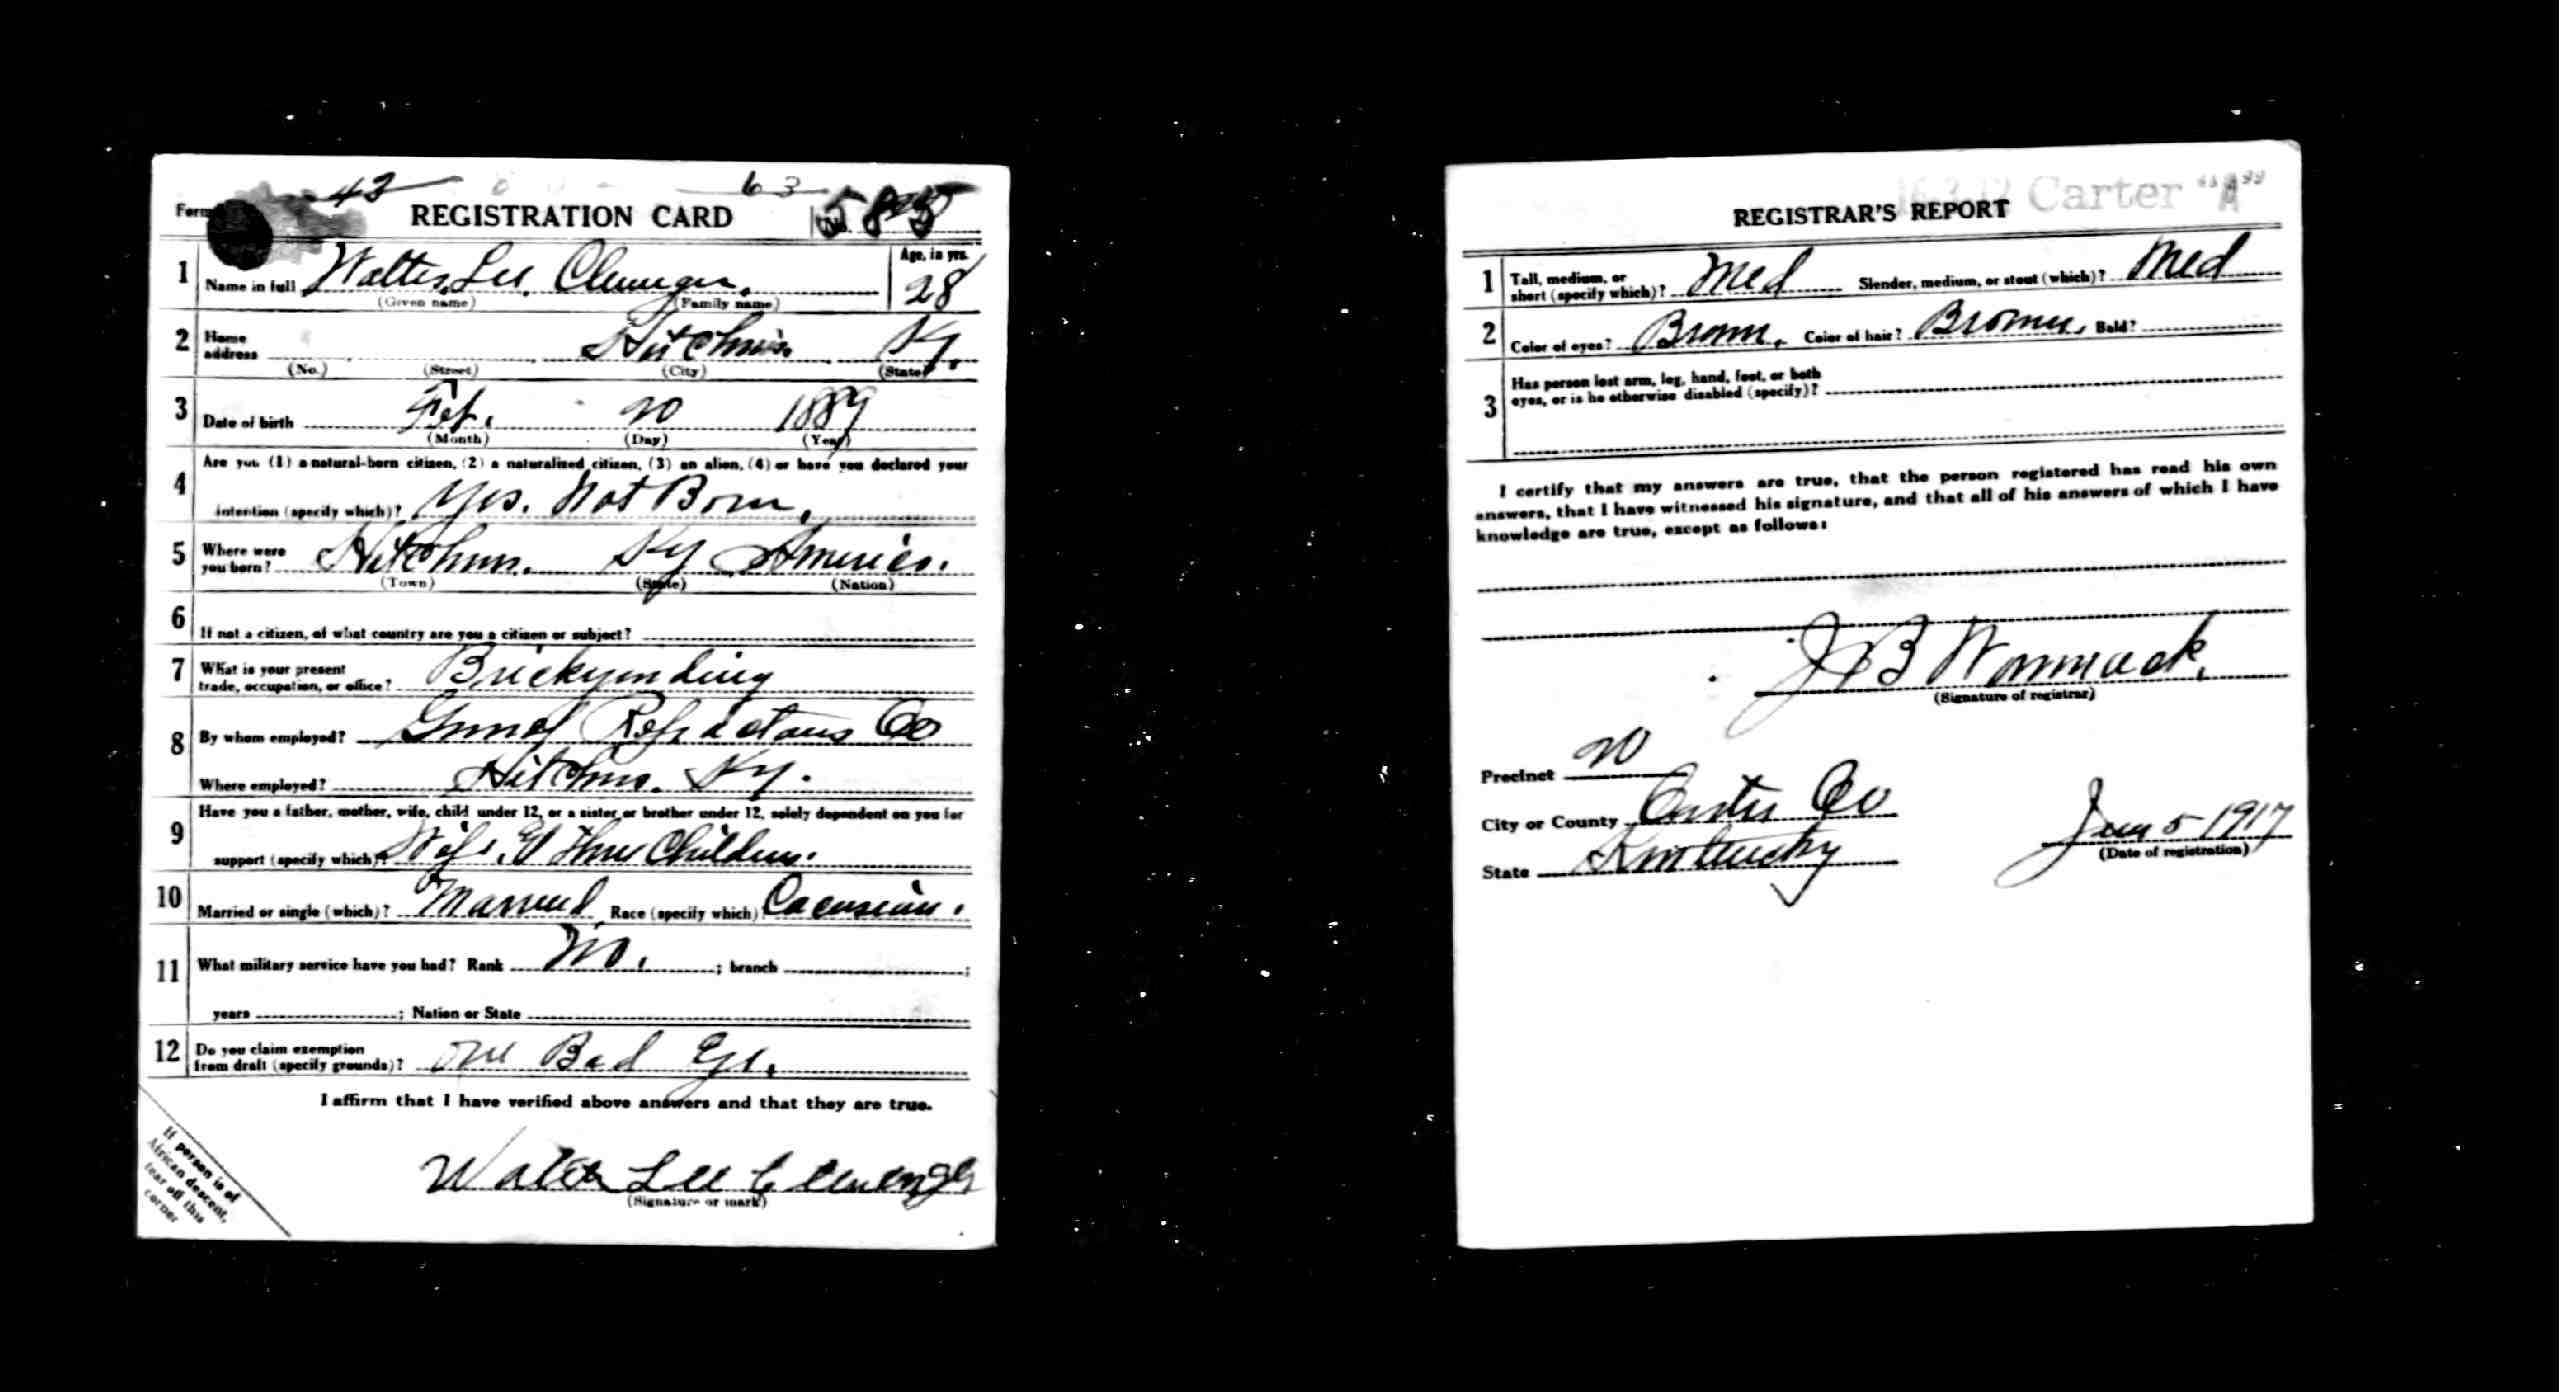 Form
43
63
REGISTRATION CARD
1 Name in full Walter Lee Clevenger. Age, in yrs. 28
(Given name) (Family name)
2 Home address Hitchins Ky.
(No.) (Street) (City) (State)
3 Date of birth Feb. 20 1889
(Month) (Day) (Year)
4 Are you (1) a natural-born citizen, (2) a naturalized citizen, (3) an alien, (4) or have you declared your
intention (specify which)? Yes. Nat Born.
5 Where were you born? Hitchins. Ky America.
(Town) (State) (Nation)
6 If not a citizen, of what country are you a citizen or subject?
7 What is your present
trade, occupation, or office?
8 By whom employed? Refractories Co
Where employed? Hitchins. Ky.
9 Have you a father, mother, wife, child under 12, or a sister or brother under 12, solely dependent on you for
support (specify which)? Wife. & Three Children.
10 Married or single (which)? Married Race (specify which)? Cacusian.
11 What military service have you had? Rank No. ; branch ;
years ; Nation or State
12 Do you claim exemption
from draft (specify grounds)? One Bad Eye.
I affirm that I have verified above answers and that they are true.
Walter Lee Clevenger
(Signature or mark)
If person is of
African descent,
tear off this
corner
Carter "A"
REGISTRAR'S REPORT
1 Tall, medium, or
short (specify which)? Med Slender, medium, or stout (which)? Med
2 Color of eyes? Brown. Color of hair? Brown. Bald?
3 Has person lost arm, leg, hand, foot, or both
eyes, or is he otherwise disabled (specify)?
I certify that my answers are true, that the person registered has read his own
answers, that I have witnessed his signature, and that all of his answers of which I have
knowledge are true, except as follows:
J B Wommack.
(Signature of registrar)
Precinct 20
City or County Carter Co
State Kentucky
June 5 1917
(Date of registration)